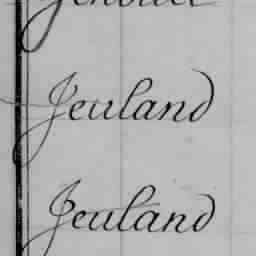 Jeuland
Jeuland